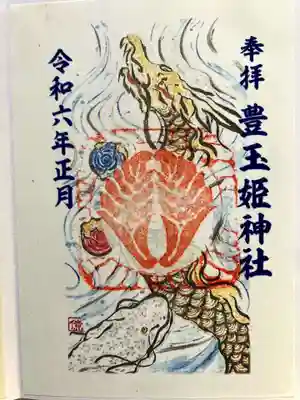 奉拝
豊玉姫神社
令和六年正月